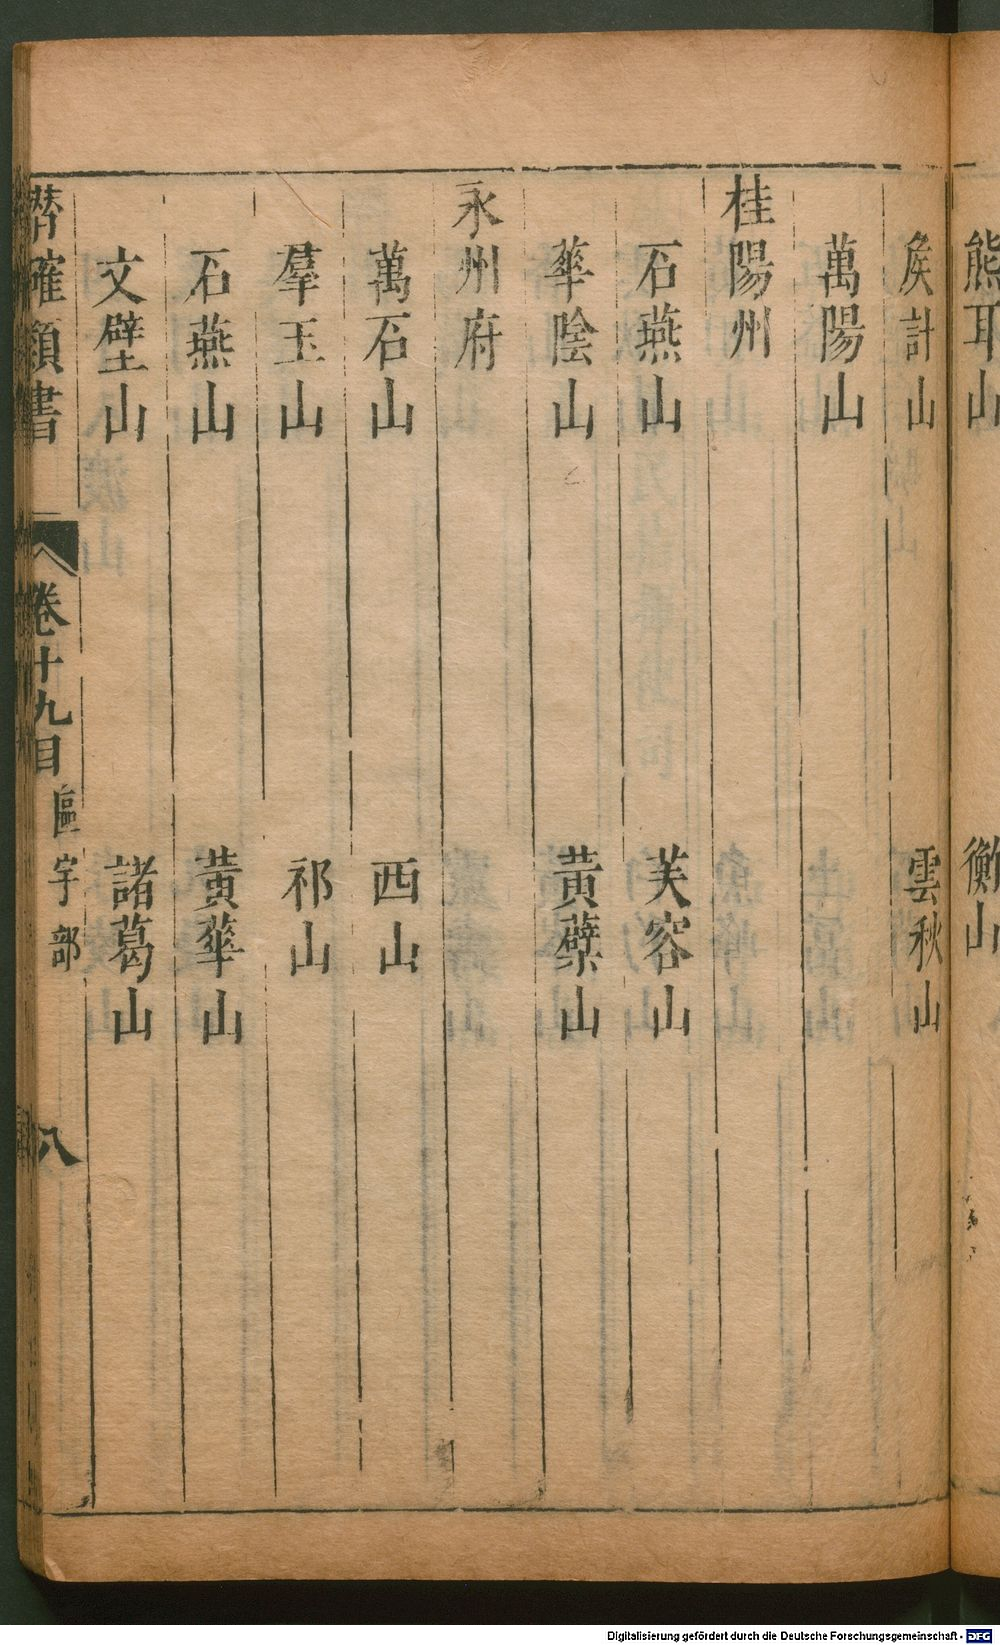 熊耳山 衡山
矦計山 雲秋山
萬陽山
桂陽州
石燕山 芙容山
華陰山 黃蘗山
永州府
萬石山 西山
羣玉山 祁山
石燕山 黃華山
文壁山 諸葛山
潛確類書 卷十九目 區宇部 八
Digitalisierung gefördert durch die Deutsche Forschungsgemeinschaft - DFG